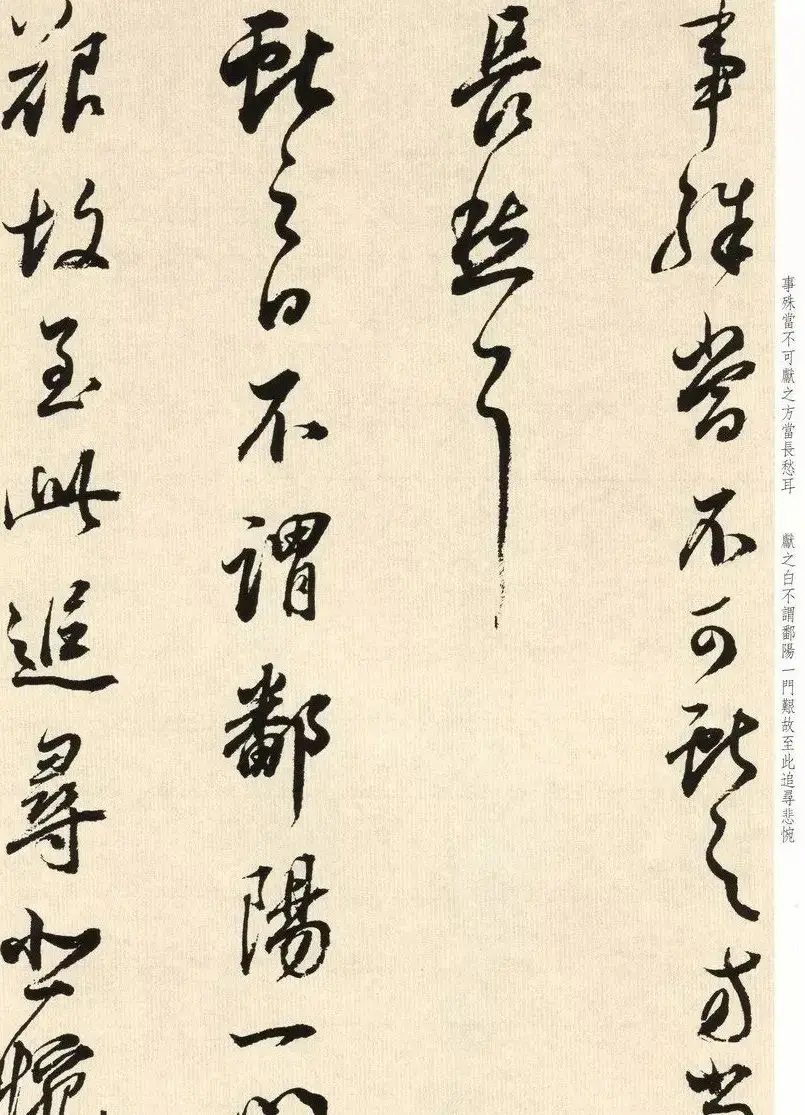 事殊當不可獻之方當
長愁耳
獻之白不謂鄱陽一門
艱故至此追尋悲惋
事殊當不可獻之方當長愁耳　獻之白不謂鄱陽一門艱故至此追尋悲惋